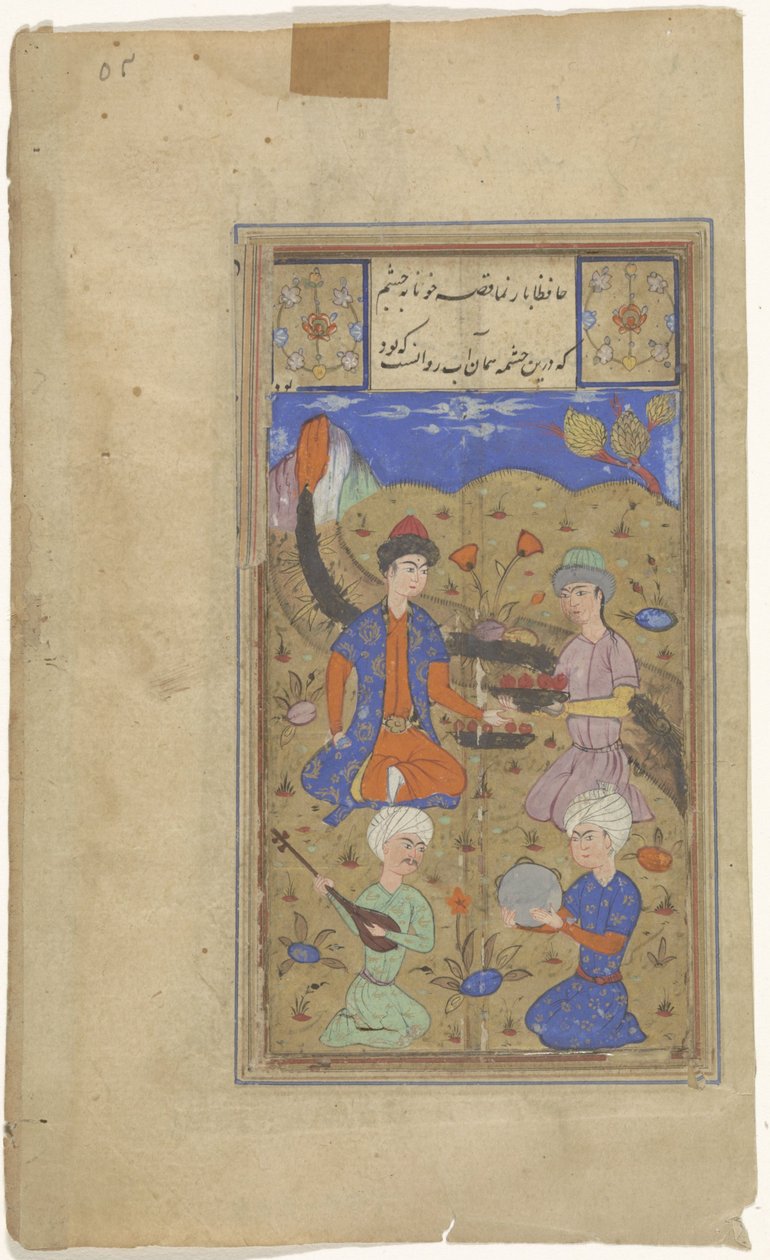 حافظا باز نما قصه خونابه چشم
که درین چشمه همان آب روانست که بود